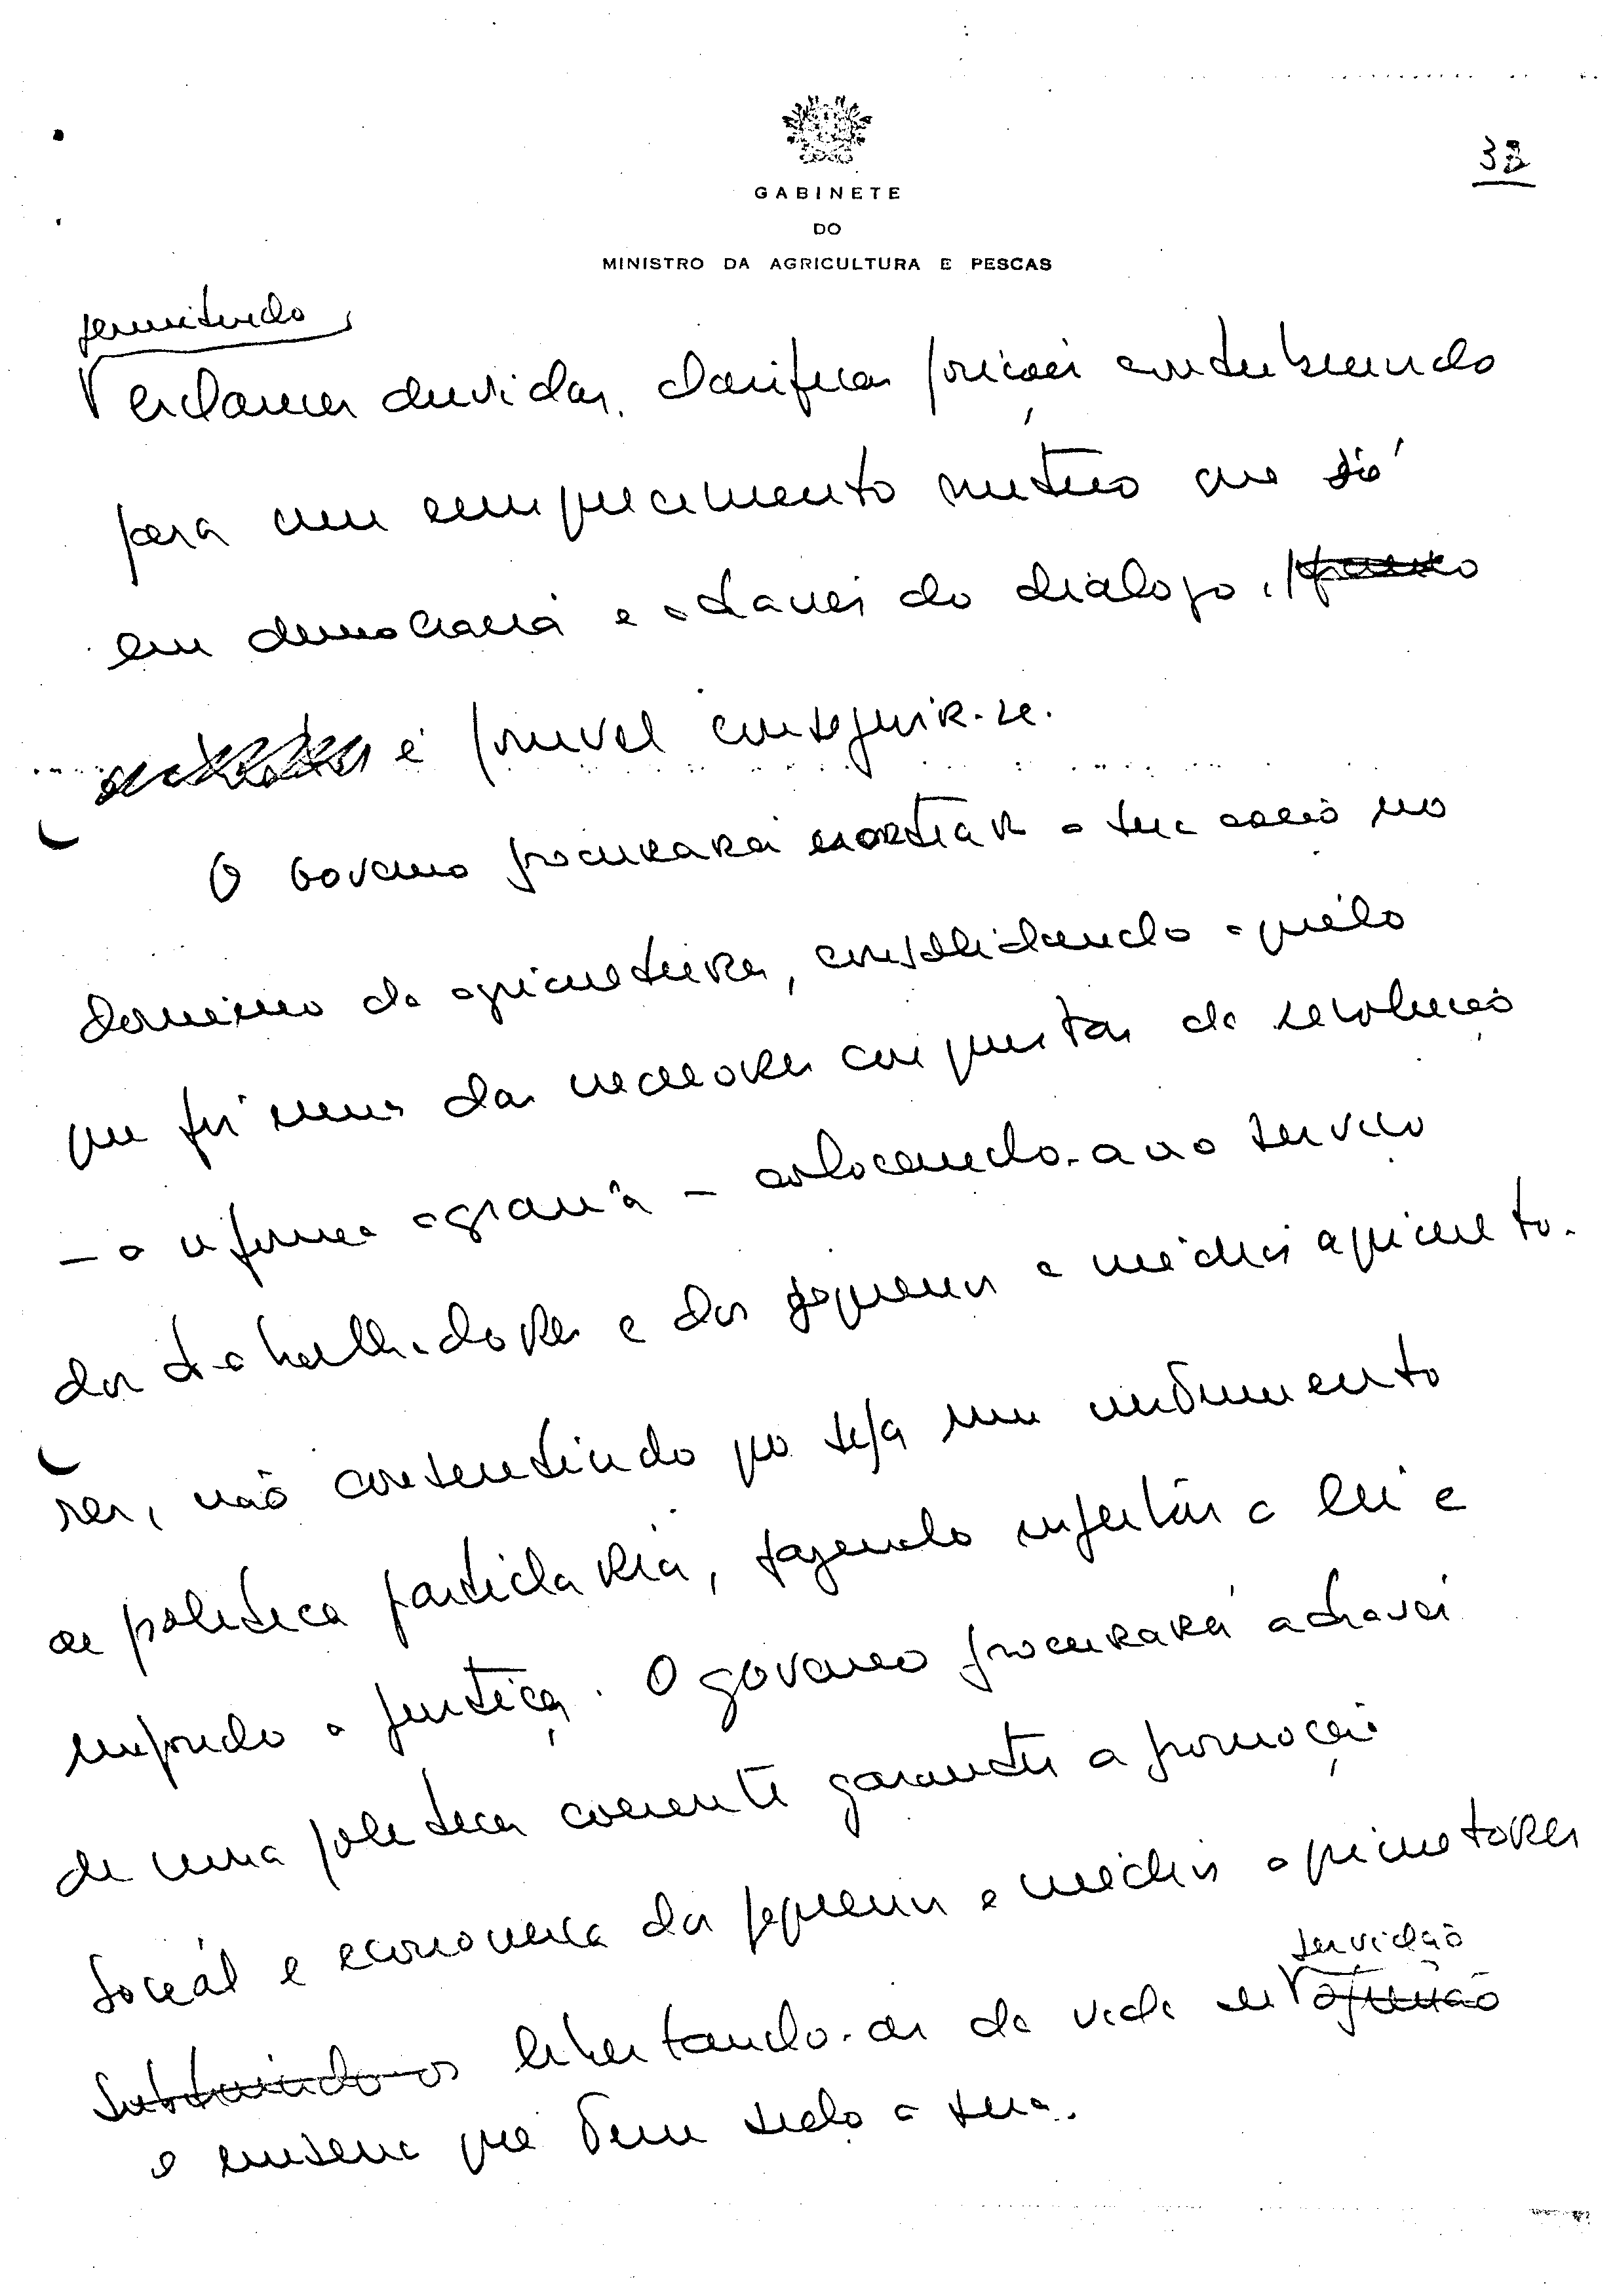 GABINETE
DO
MINISTRO DA AGRICULTURA E PESCAS
permitindo
esclarecer duvidas, clarificar posições contribuindo
para um enriquecimento mútuo que só
em democracia e através do dialogo,
é possivel conseguir-se.
O Governo procurará nortear a sua acção no
dominio da agricultura, consolidando aquilo
que foi uma das maiores conquistas da revolução
— a reforma agrária — colocando-a ao serviço
dos trabalhadores e dos pequenos e médios agriculto-
res, não consentindo que seja um instrumento
de politica partidaria, fazendo respeitar a lei e
impondo a justiça. O governo procurará através
de uma politica coerente garantir a promoção
social e economica dos pequenos e médios agricultores
servidão
Substraindo-os libertando-os da vida de opressão
e miseria que tem sido a sua.